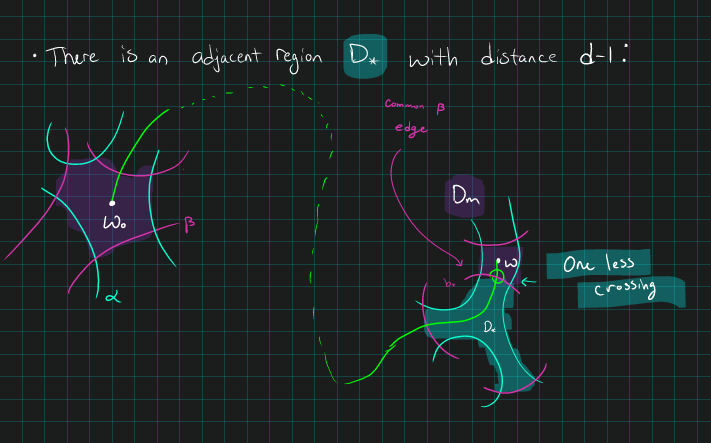 • There is an adjacent region D* with distance d-1:
Common β
edge
Dm
W₀
β
α
W
b*
One less
crossing
D*